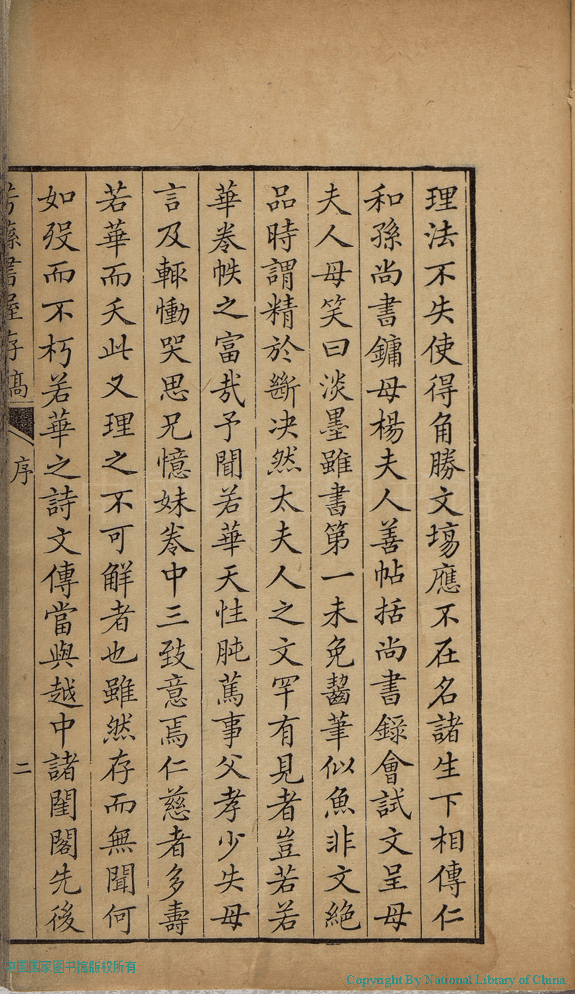 理法不失使得角勝文塲應不在名諸生下相傳仁
和孫尚書鏞母楊夫人善帖括尚書錄會試文呈母
夫人母笑曰淡墨雖書第一未免齧筆似魚非文絕
品時謂精於斷決然太夫人之文罕有見者豈若若
華卷帙之富哉予聞若華天性肫萬事父孝少失母
言及輒慟哭思兄憶妹卷中三致意焉仁慈者多壽
若華而夭此又理之不可解者也雖然存而無聞何
如歿而不朽若華之詩文傳當與越中諸閨閣先後
書屋存稿
序
二
中国国家图书馆版权所有
Copyright By National Library of China